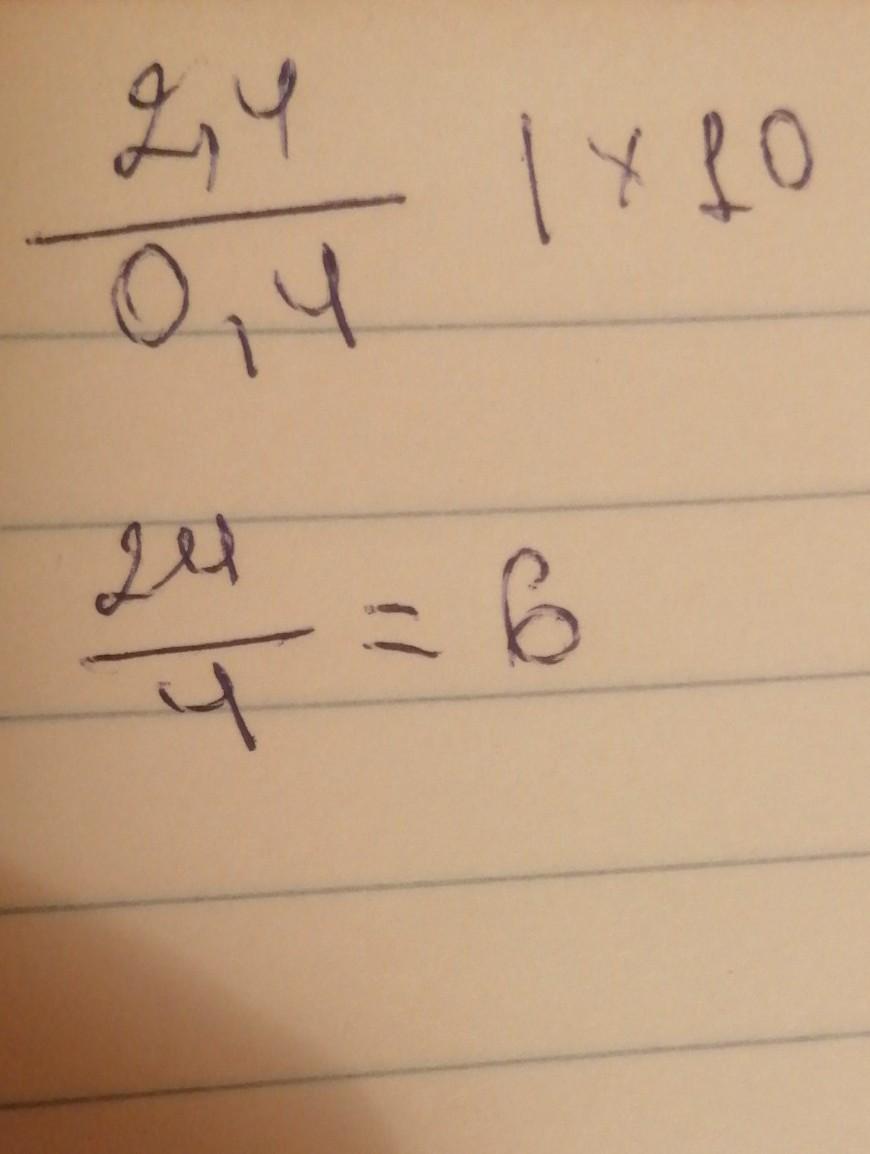 2,4
0,4 | × 10
24
4 = 6